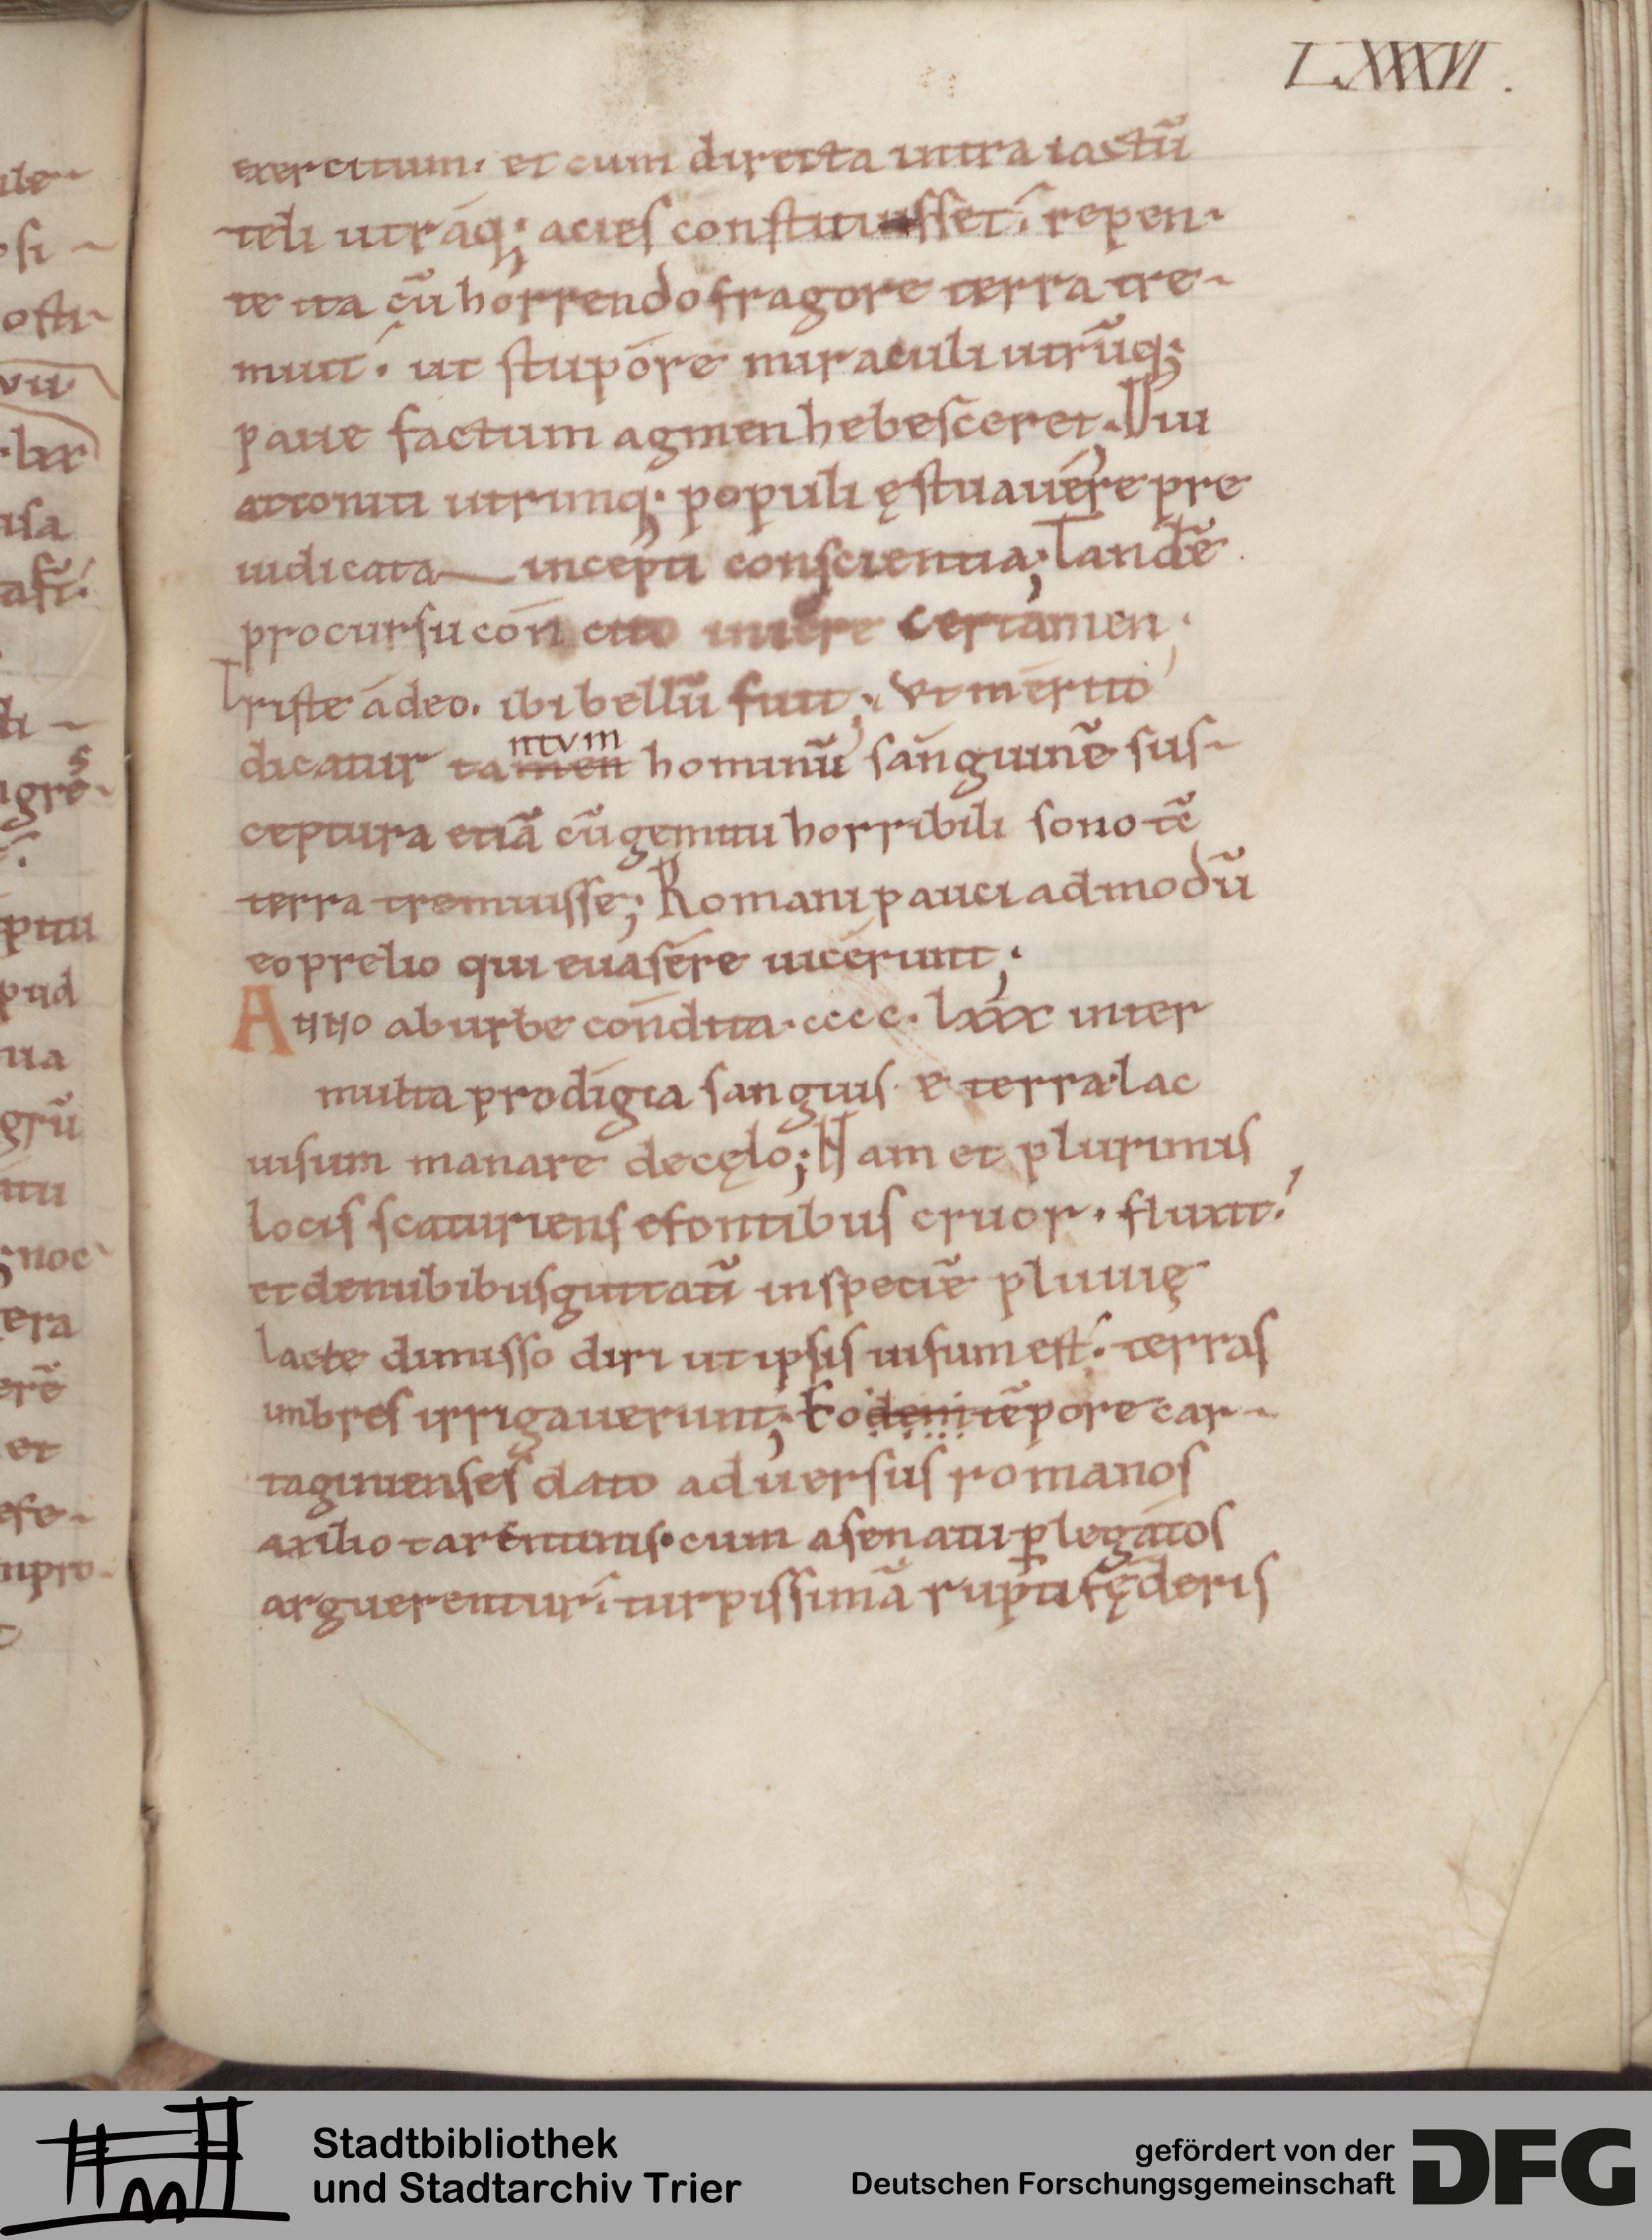 LXXXVI.
exercitum. et cum directa intra iactū
teli utraq; acies constituisset. repen-
te ita cū horrendo fragore terra tre-
muit. ut stupore miraculi utrūq;
paue factum agmen hebesceret. Diu
attoniti utrimq; populi ęstuauere pre
iudicata incepti conscientia; Tandē
procursu con cito iniere certamen;
Triste adeo. ibi bellū fuit; Vt merito
dicatur tamen hominū sanguinē sus-
ntvm
ceptura etiā cū gemitu horribili sono tc̄
terra tremuisse; Romani pauci admodū
eo prelio qui euasere uicerunt;
Anno ab urbe condita. cccc. lxxx inter
multa prodigia sanguis e terra. lac
uisum manare de cęlo; Nam et plurimis
locis scaturiens e fontibus cruor. fluxit.
et de nubibus guttatī in speciē pluuię
lacte dimisso diri ut ipsis uisum est. terras
imbres irrigauerunt; Eodem tēpore car-
taginienses dato aduersus romanos
axilio tarentinis. cum a senatu p legatos
arguerentur. turpissimā rupti fęderis
Stadtbibliothek
und Stadtarchiv Trier
gefördert von der
Deutschen Forschungsgemeinschaft
DFG